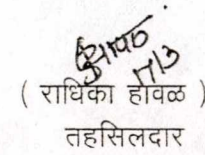 17/3
( राधिका हावळ )
तहसिलदार